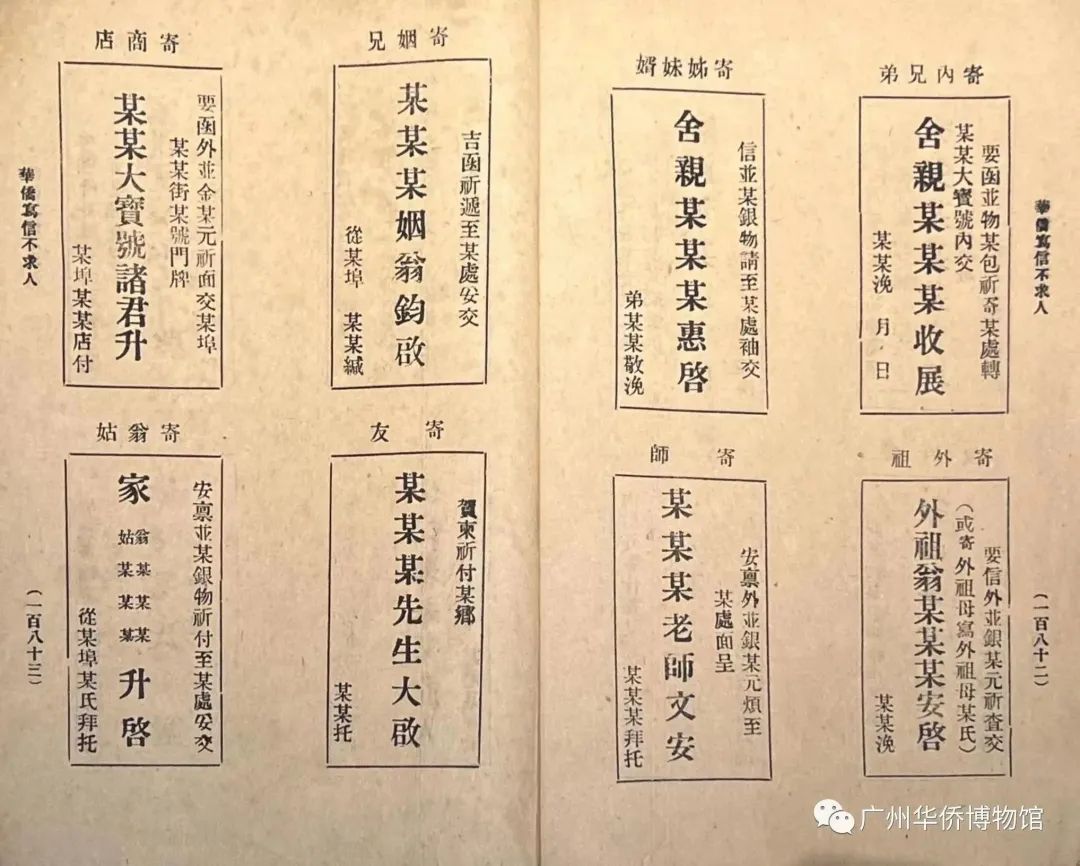 華僑寫信不求人
(一百八十二)
寄內兄弟
要函並物某包祈寄某處轉
某某大寶號內交
舍親某某某收展
某某浼 月 日
寄姊妹婿
信並某銀物請至某處袖交
舍親某某某惠啓
弟某某某敬浼
寄外祖
要信外並銀某元祈査交
(或寄外祖母寫外祖母某氏)
外祖翁某某某安啓
某某浼
寄師
安稟外並銀某元煩至
某處面呈
某某某老師文安
某某某拜托
寄姻兄
吉函祈遞至某處妥交
某某某姻翁鈞啟
從某埠 某某緘
寄商店
要函外並金某元祈面交某埠
某某街某號門牌
某某大寶號諸君升
某埠某某店付
寄友
賀柬祈付某鄉
某某某先生大啟
某某托
寄翁姑
安稟並某銀物祈付至某處妥交
家 翁某某某 姑某某某 升啓
從某埠某氏拜托
華僑寫信不求人
(一百八十三)
广州华侨博物馆